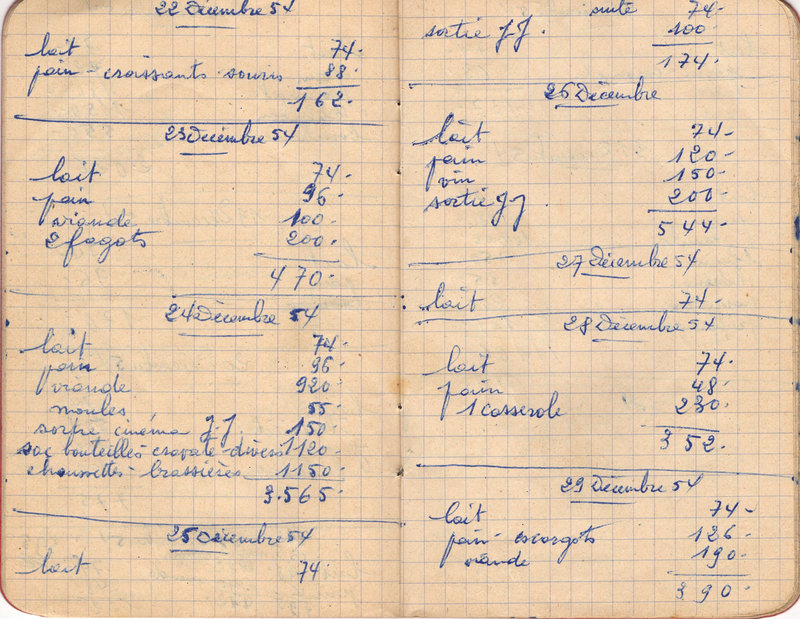 22 Décembre 54
lait 74.
pain - croissants souris 88.
162.
23 Décembre 54
lait 74.
pain 96.
viande 100.
2 fagots 200.
470.
24 Décembre 54
lait 74.
pain 96.
viande 920.
moules 55.
cinéma J.J. 150.
sac bouteilles cravate divers 1120.
chaussettes - brassières 1150.
3.565.
25 Décembre 54
lait 74.
suite 74.
sortie J.J. 100.
174.
26 Décembre
lait 74-
pain 120-
vin 150-
sortie J.J. 200-
544-
27 Décembre 54
lait 74-
28 Décembre 54
lait 74.
pain 48.
1 casserole 230.
352.
29 Décembre 54
lait 74-
pain - escargots 126-
viande 190-
390